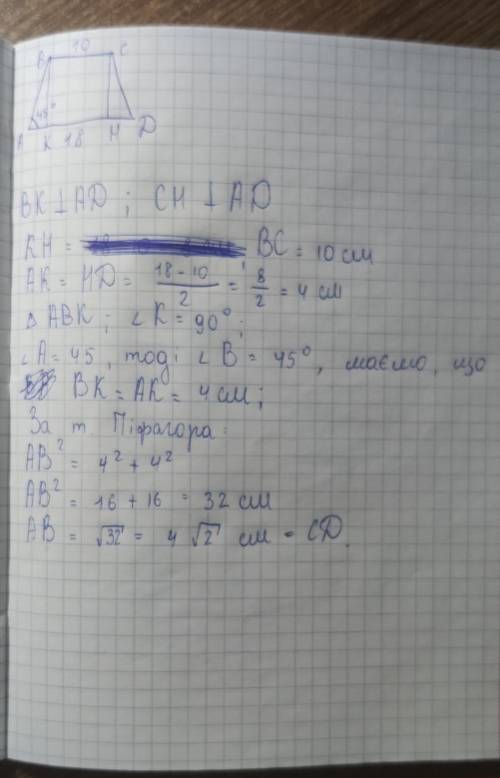 10
B C
45°
A K 18 H D
BK ⊥ AD ; CH ⊥ AD
KH = BC = 10 см
AK = HD = (18 - 10)/2 = 8/2 = 4 см
△ ABK ; ∠K = 90° ;
∠A = 45 , тоді ∠B = 45° , маємо, що
BK = AK = 4 см ;
За т. Піфагора :
AB² = 4² + 4²
AB² = 16 + 16 = 32 см
AB = √32 = 4 √2 см = CD.